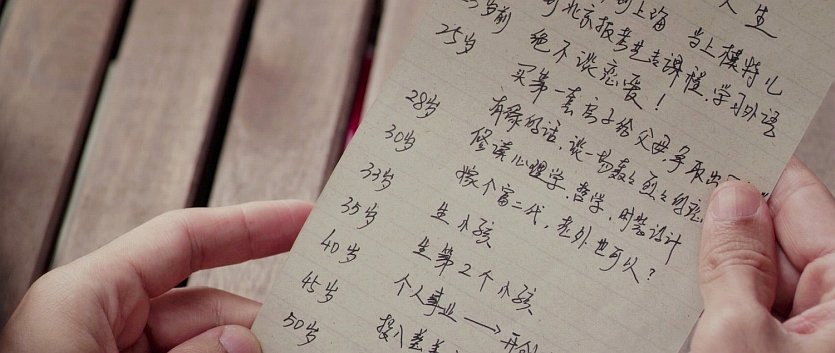 人生
到上海 当上模特儿
岁前 到北京报考艺专课程,学习外语
25岁 绝不谈恋爱!
买第一套房子给父母,争取出
28岁 有缘的话,谈一场轰轰烈烈的恋
30岁 修读心理学,哲学,时装设计
33岁 嫁个富二代,老外也可以?
35岁 生小孩
40岁 生第2个小孩
45岁 个人事业 → 开创
50岁 投入慈善